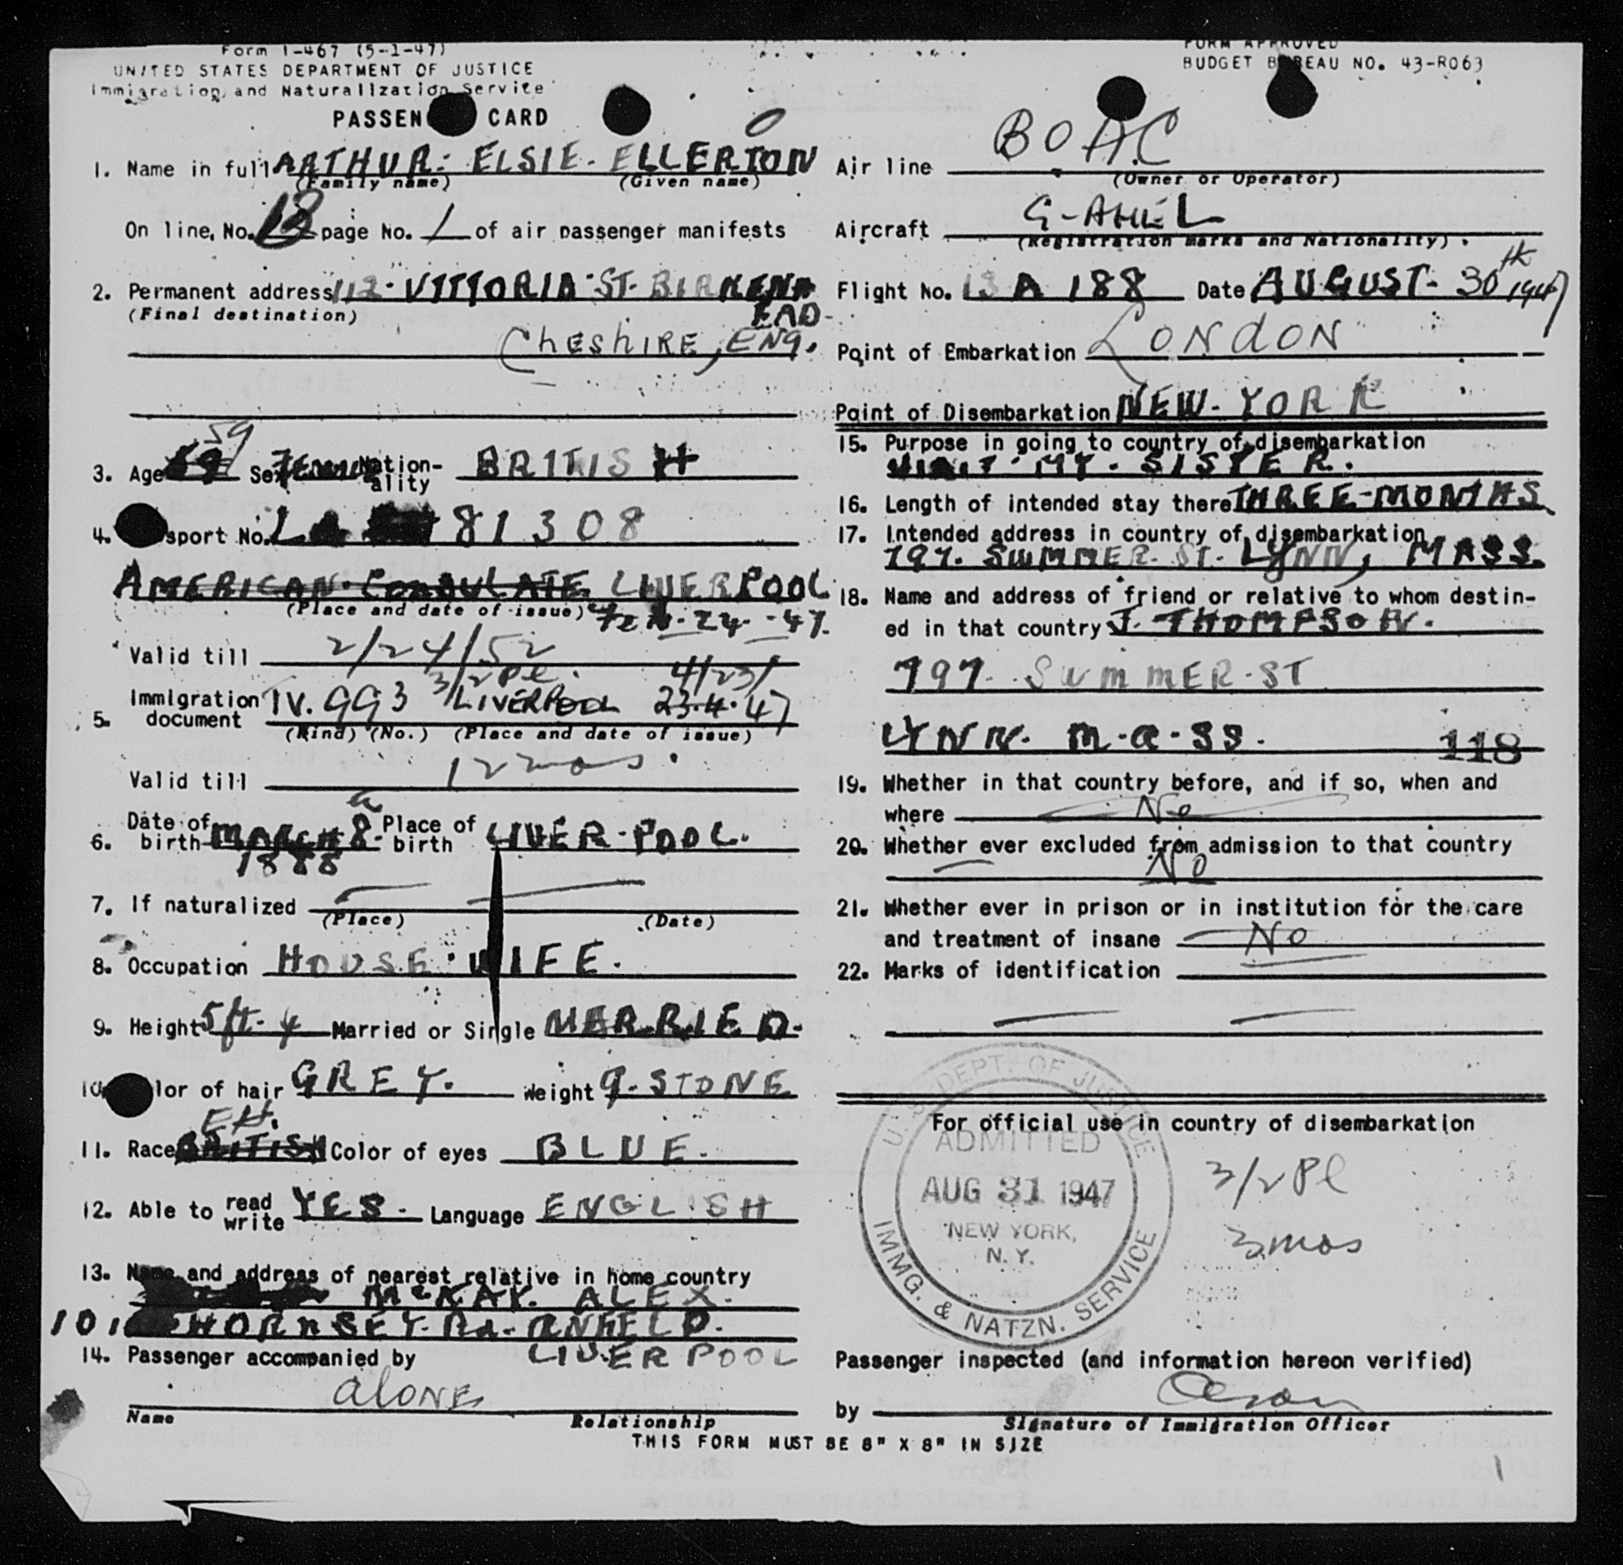 Form I-467 (5-1-47)
UNITED STATES DEPARTMENT OF JUSTICE
Immigration and Naturalization Service
PASSEN CARD
FORM APPROVED
BUDGET BUREAU NO. 43-R063
1. Name in full ARTHUR. ELSIE. ELLERTON
(Family name) (Given name)
On line, No. 13 page No. 1 of air passenger manifests
2. Permanent address 112. VITTORIA ST. BIRKENH
(Final destination) EAD
CHESHIRE, ENG.
3. Age 59 Sex Nation-ality BRITISH
4. sport No. 81308
AMERICAN. CONSULATE LIVERPOOL
(Place and date of issue) FEB. 24 - 47.
Valid till 2/24/52
3/2 Pl. 4/23/
5. Immigration document TV. 993 LIVERPOOL 23.4.47
(Kind) (No.) (Place and date of issue)
Valid till 12 mos.
6. Date of birth MARCH 8. Place of birth LIVER-POOL.
1888
7. If naturalized
(Place) (Date)
8. Occupation HOUSE. WIFE.
9. Height 5 ft. 4 Married or Single MARRIED.
10. lor of hair GREY. Weight 9. STONE
EN.
11. Race BRITISH Color of eyes BLUE.
12. Able to read write YES. Language ENGLISH
13. Name and address of nearest relative in home country
McKAY. ALEX.
101 HORNSEY. Rd. ANFIELD.
LIVERPOOL
14. Passenger accompanied by
alONE
Name Relationship
Air line BOAC
(Owner or Operator)
Aircraft G-AHEL
(Registration marks and Nationality).
Flight No. 13 A 188 Date AUGUST. 30th 1947
Point of Embarkation LONDON
Point of Disembarkation NEW. YORK
15. Purpose in going to country of disembarkation
VISIT. MY. SISTER.
16. Length of intended stay there THREE-MONTHS
17. Intended address in country of disembarkation
797. SUMMER. ST. LYNN, MASS.
18. Name and address of friend or relative to whom destin-
ed in that country J. THOMPSON.
797. SUMMER. ST
LYNN. M.a.SS. 118
19. Whether in that country before, and if so, when and
where No
20. Whether ever excluded from admission to that country
No
21. Whether ever in prison or in institution for the care
and treatment of insane No
22. Marks of identification
For official use in country of disembarkation
U.S. DEPT. OF JUSTICE
ADMITTED
AUG 31 1947
NEW YORK,
N. Y.
IMMG. & NATZN. SERVICE
3/2 Pl
3 mos
Passenger inspected (and information hereon verified)
by
Signature of Immigration Officer
THIS FORM MUST BE 8" X 8" IN SIZE